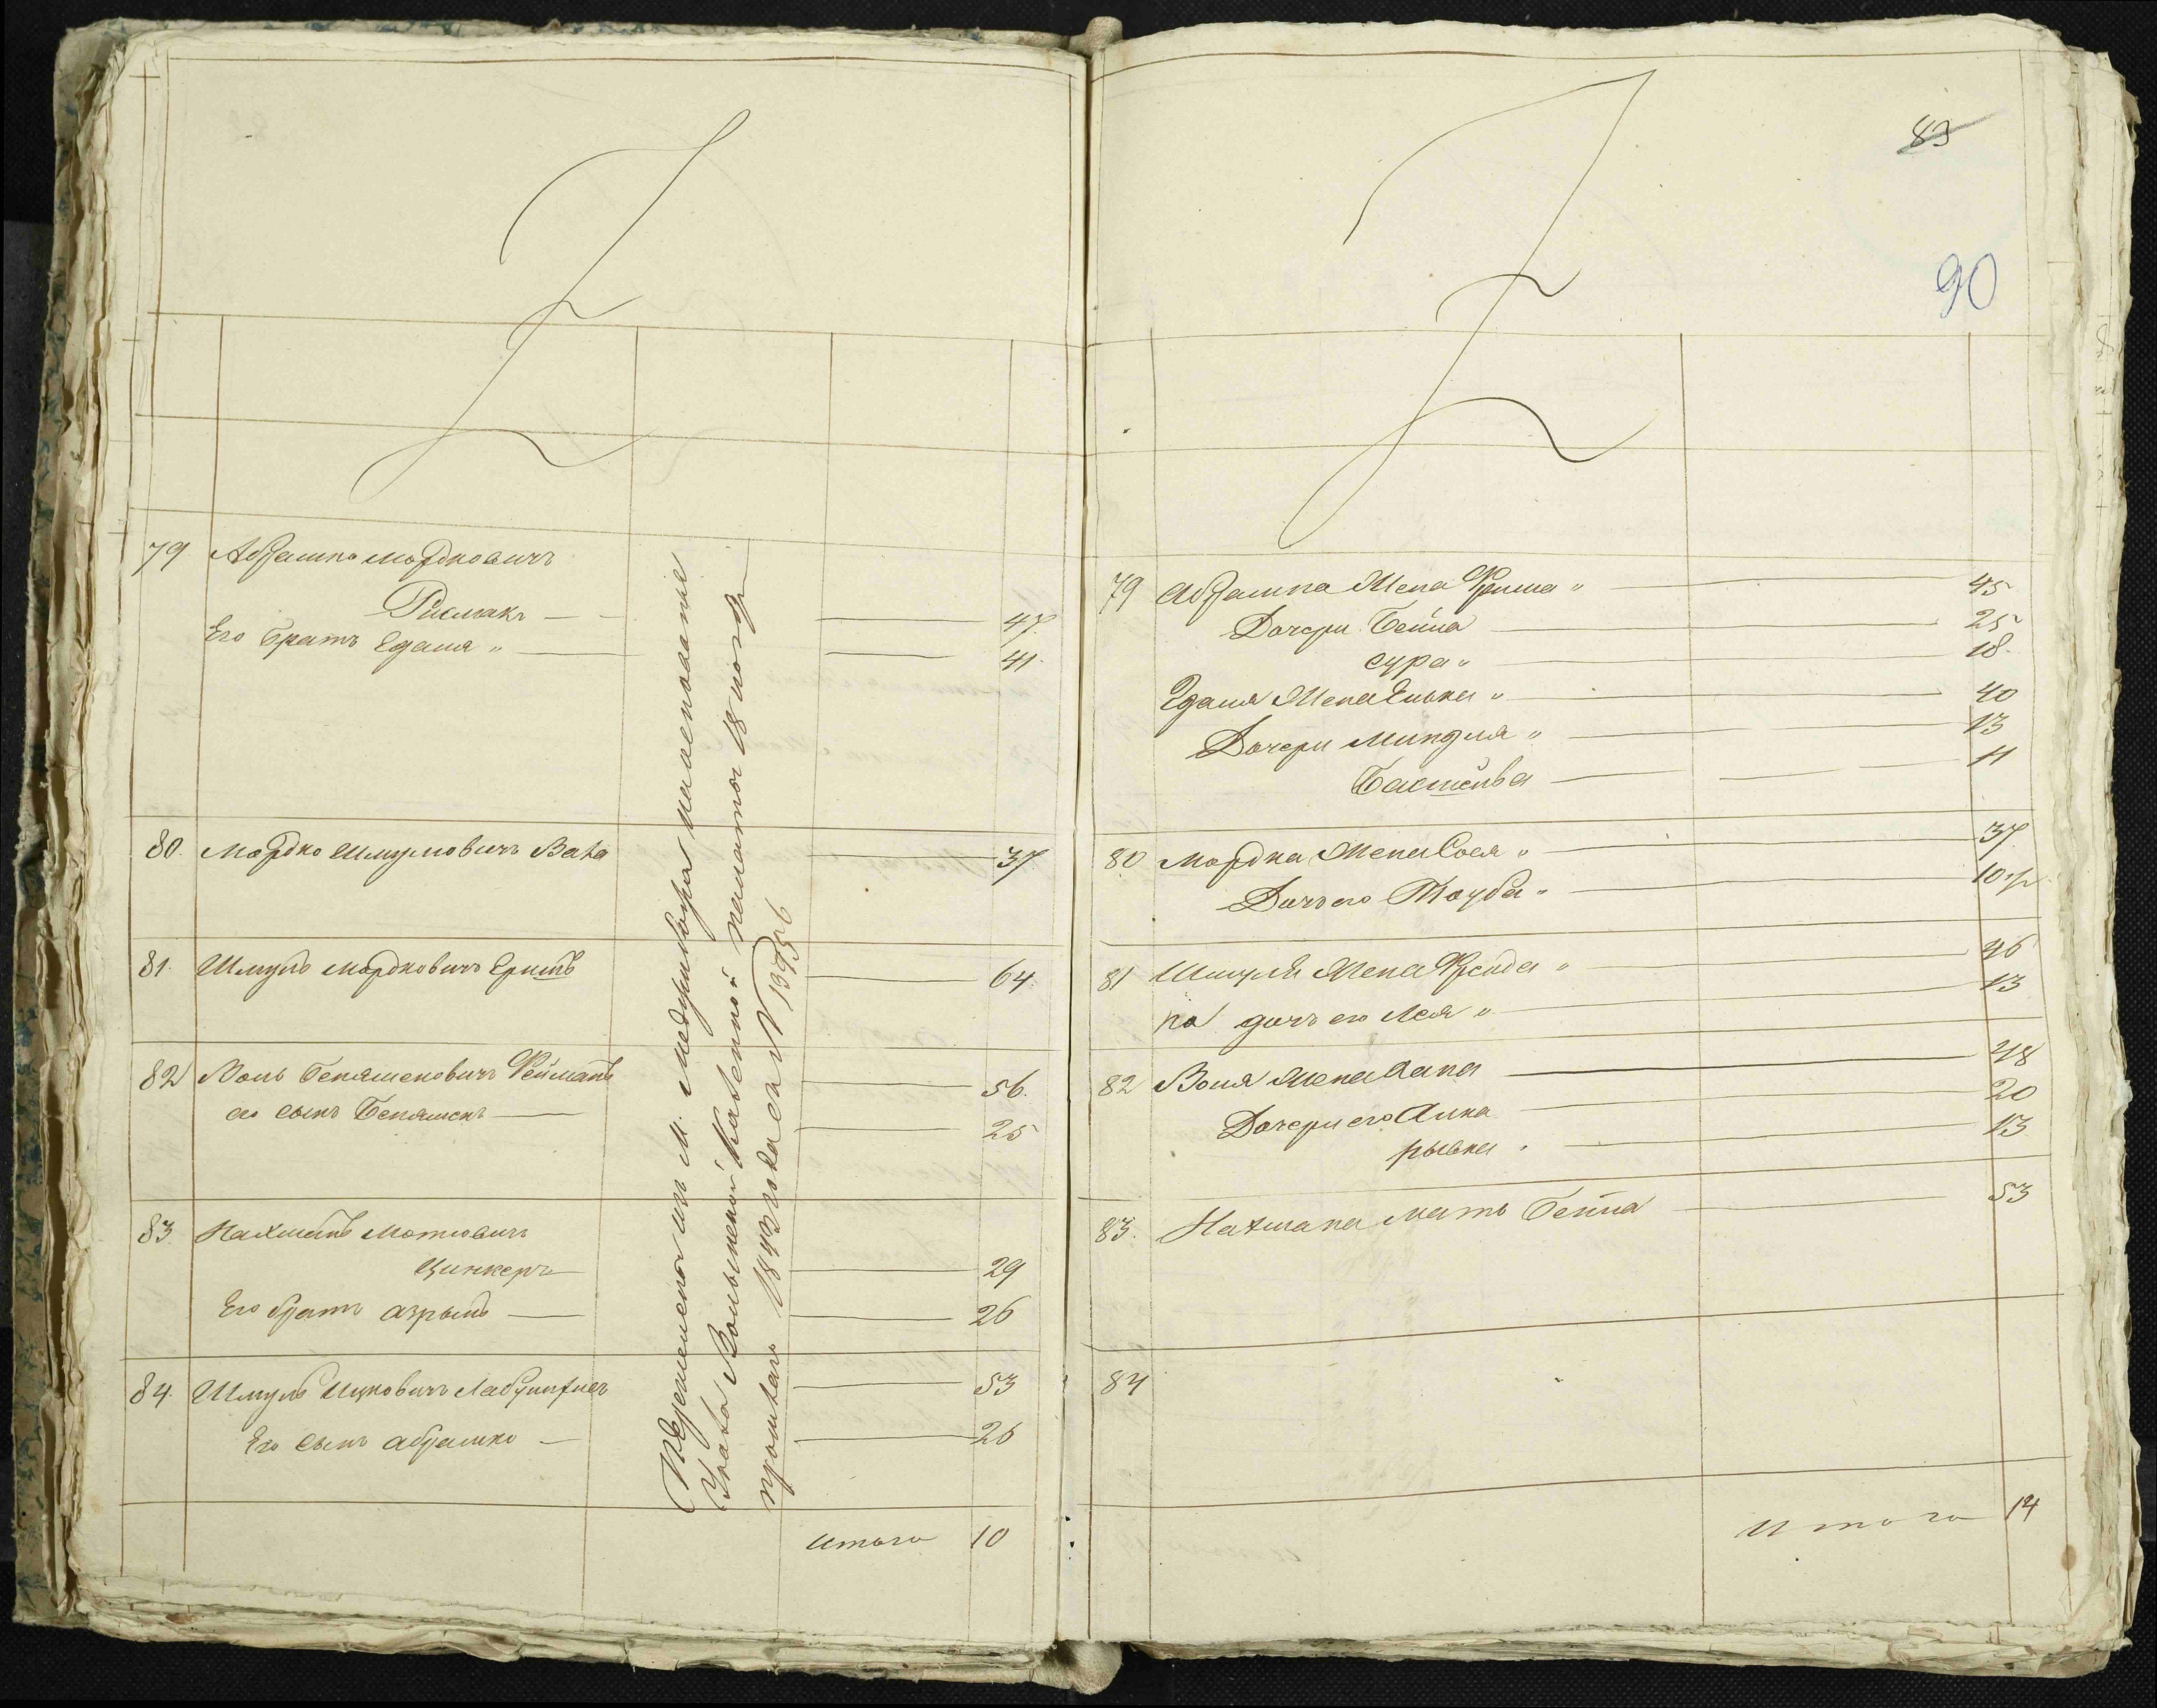 79 Абрашко Мордковичъ
Рислакъ 47.
Его братъ Едаля „ 41.
80. Мордко Шмулiовичъ 37.
81. Шмуль Мордковичъ 64.
82 Воль Беняменовичъ Фейманъ 56.
его сынъ Беняменъ 25
83. Нахманъ Мотiовичъ
Цинкеръ 29
Его братъ Азрыль 26
84. Шмуль Ицковичъ 53
Его сынъ Абрашко 26
Итого 10
изъ М. Межирича на основанiи
Указа Волынской Казенной палаты 18 ноябр
1843 года N 13956
83
90
79 Абрашка Жена Фрима „ 45
Дочери Бейла 25
Сура „ 18.
Едаля Жена Енька „ 40
Дочери Миндля „ 13
Бастева 11
80 Мордка Жена Сося „ 37
Дочь его Тауба „ 10 ½
81 Шмуля Жена Фрейда „ 46
дочь его Лея „ 13
82 Воля Жена Хана 48
Дочери его Алка 20
рывка 13
83. Нахмана мать Бейла 53
84
Итого 14